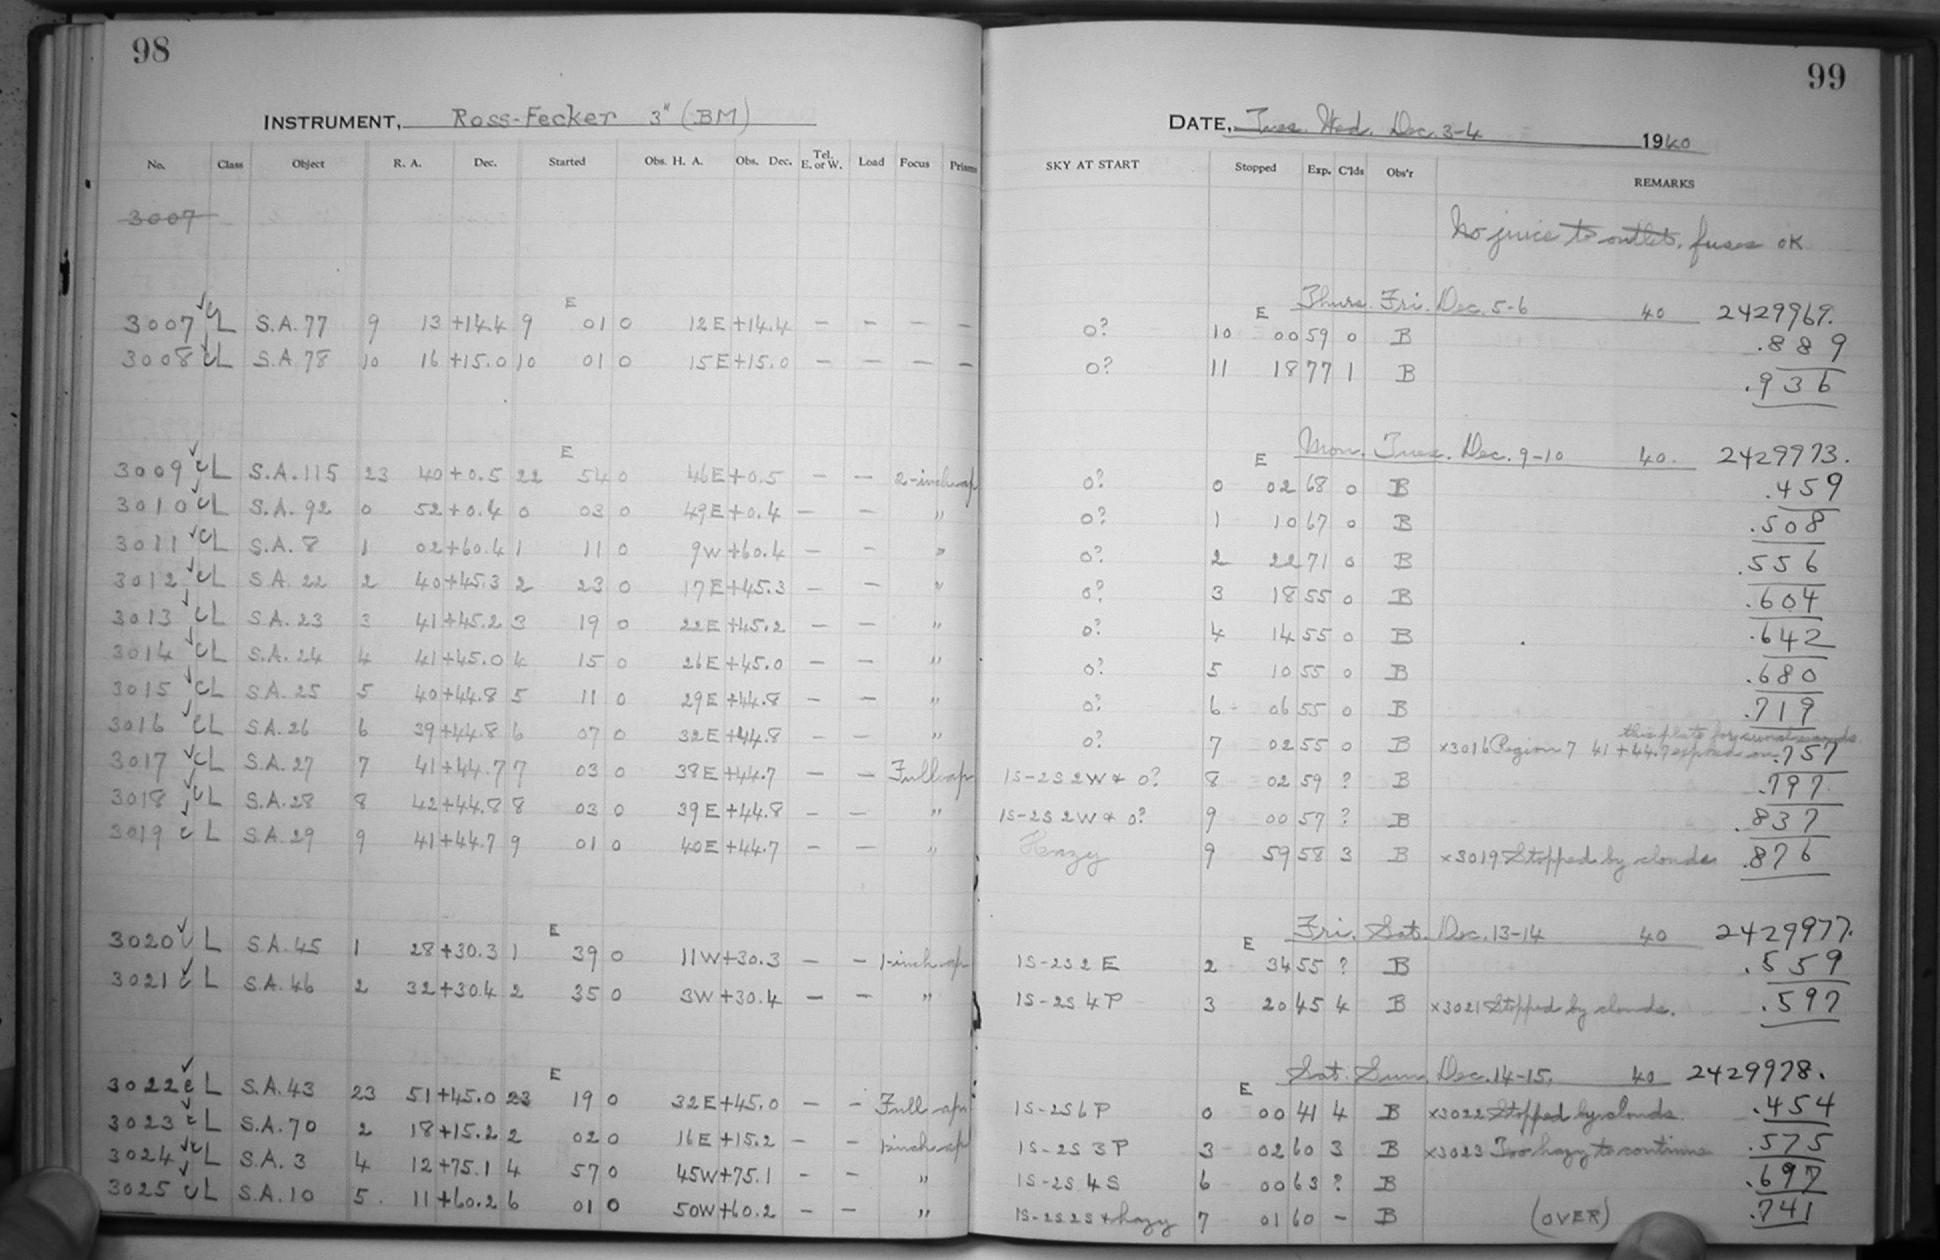 98
INSTRUMENT, Ross-Fecker 3" (BM)
No. Class Object R. A. Dec. Started Obs. H. A. Obs. Dec. Tel. E. or W. Load Focus Prisms
3007
E
3007 CL S.A. 77 9 13 +14.4 9 01 0 12E +14.4 — — — —
3008 CL S.A. 78 10 16 +15.0 10 01 0 15E +15.0 — — — —
E
3009 CL S.A. 115 23 40 +0.5 22 54 0 46E +0.5 — — 2-inch ap
3010 CL S.A. 92 0 52 +0.4 0 03 0 49E +0.4 — — "
3011 CL S.A. 8 1 02 +60.4 1 11 0 9W +60.4 — — "
3012 CL S.A. 22 2 40 +45.3 2 23 0 17E +45.3 — — "
3013 CL S.A. 23 3 41 +45.2 3 19 0 22E +45.2 — — "
3014 CL S.A. 24 4 41 +45.0 4 15 0 26E +45.0 — — "
3015 CL S.A. 25 5 40 +44.8 5 11 0 29E +44.8 — — "
3016 CL S.A. 26 6 39 +44.8 6 07 0 32E +44.8 — — "
3017 CL S.A. 27 7 41 +44.7 7 03 0 38E +44.7 — — Full ap
3018 CL S.A. 28 8 42 +44.8 8 03 0 39E +44.8 — — "
3019 CL S.A. 29 9 41 +44.7 9 01 0 40E +44.7 — — "
E
3020 CL S.A. 45 1 28 +30.3 1 39 0 11W +30.3 — — 1-inch ap
3021 CL S.A. 46 2 32 +30.4 2 35 0 3W +30.4 — — "
E
3022 CL S.A. 43 23 51 +45.0 23 19 0 32E +45.0 — — Full ap
3023 CL S.A. 70 2 18 +15.2 2 02 0 16E +15.2 — — 1-inch ap
3024 CL S.A. 3 4 12 +75.1 4 57 0 45W +75.1 — — "
3025 CL S.A. 10 5 11 +60.2 6 01 0 50W +60.2 — — "
99
DATE, Tues. Wed. Dec. 3-4 1940
SKY AT START Stopped Exp. C'lds Obs'r REMARKS
No juice to outlets, fuses OK
E Thurs. Fri. Dec. 5-6 40 2429969.
0? 10 00 59 0 B .889
0? 11 18 77 1 B .936
E Mon. Tues. Dec. 9-10 40 2429973.
0? 0 02 68 0 B .459
0? 1 10 67 0 B .508
0? 2 22 71 0 B .556
0? 3 18 55 0 B .604
0? 4 14 55 0 B .642
0? 5 10 55 0 B .680
0? 6 06 55 0 B .719
this plate for
0? 7 02 55 0 B x3016 Region 7 41 +44.7 exposed on .757
1S-2S 2W & 0? 8 02 59 ? B .797
1S-2S 2W & 0? 9 00 57 ? B .837
Hazy 9 59 58 3 B x3019 Stopped by clouds .876
E Fri. Sat. Dec. 13-14 40 2429977.
1S-2S 2 E 2 34 55 ? B .559
1S-2S 4 P 3 20 45 4 B x3021 Stopped by clouds. .597
E Sat. Sun. Dec. 14-15. 40 2429978.
1S-2S 6 P 0 00 41 4 B x3022 Stopped by clouds. .454
1S-2S 3 P 3 02 60 3 B x3023 Too hazy to continue .575
1S-2S 4 S 6 00 63 ? B .697
1S-2S 2S & hazy 7 01 60 — B (OVER) .741